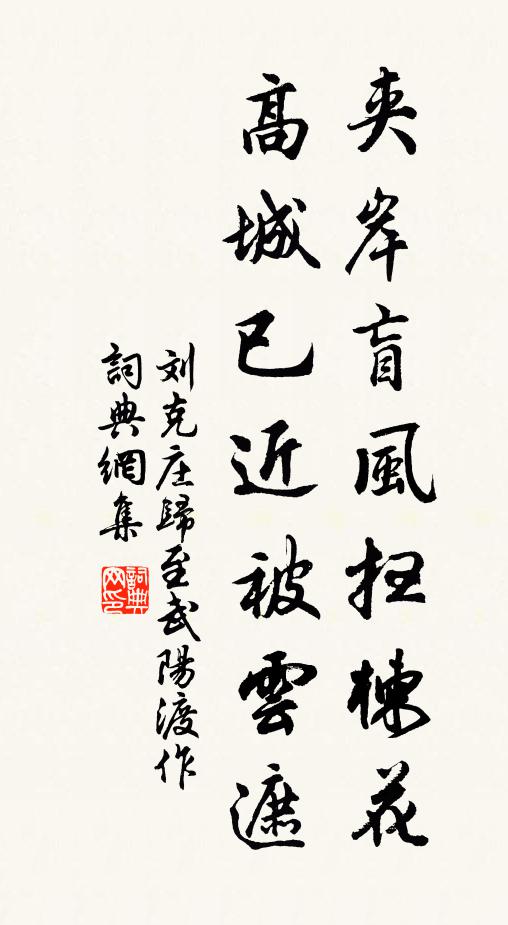 夹岸盲風扫楝花
高城已近被雲遮
刘克庄歸至武陽渡作
詞典網集
詞典網印